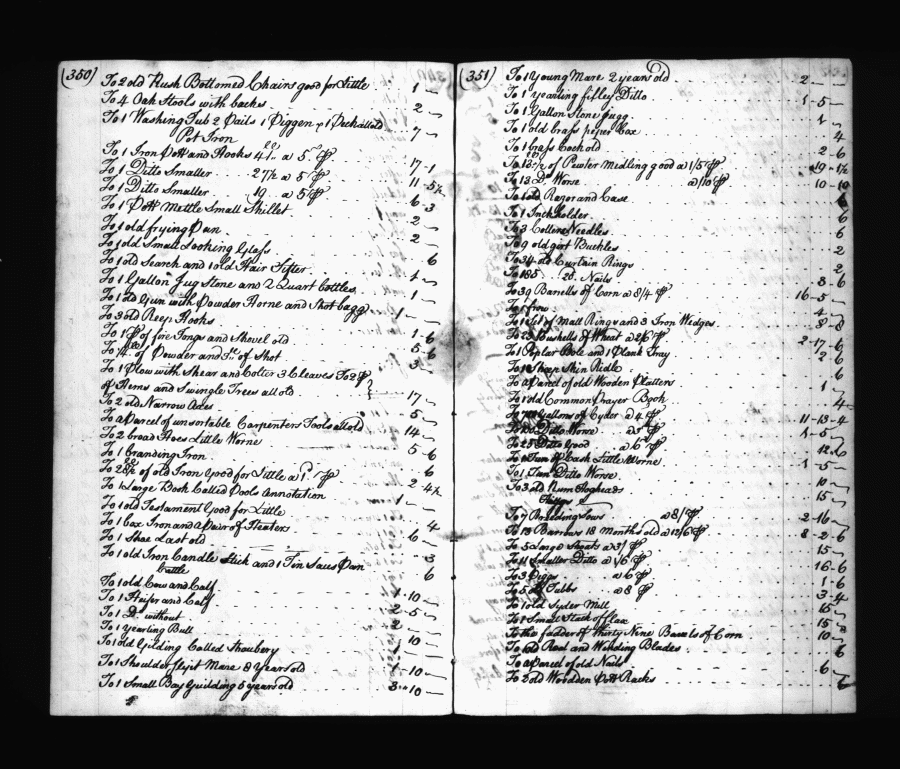 (350)
To 2 old Rush Bottomed Chairs good for Little 1 —
To 4 Oak Stools with backs 2 —
To 1 Washing Tub 2 Pails 1 Piggen & 1 Peck all old 7 —
Pot Iron
To 1 Iron Pott and Hooks 41 lb a 5d 17 - 1
To 1 Ditto Smaller 27 1/2 a 5 11 - 5 1/2
To 1 Ditto Smaller 19 a 5 6 - 3
To 1 Pott Mettle Small Skillet 2 —
To 1 old frying Pan 2 —
To 1 old Small Looking Glass 6
To 1 old Search and 1 old Hair Sifter 1 —
To 1 Gallon Jug Stone and 2 Quart bottles 1 —
To 1 old Gun with Powder Horne and Shot bagg 1 —
To 3 old Reep Hooks 1 - 6
To 1 of fire Tongs and Shovel old 5 - 6
of Powder and Do of Shot 3 —
To 1 Plow with Shear and Colter 3 Cleaves To 2
of Hems and Swingle Trees all old 17 —
To 2 old Narrow Axes 5 —
To a Parcel of unsortable Carpenters Tools all old 14 —
To 2 broad Hoes Little Worne 5 - 6
To 1 Branding Iron 6
To 28 1/2 of old Iron Good for Little a 1 2 - 4 1/2
To 1 Large Book Called Pools Annotation 1 —
To 1 old Testament Good for Little
To 1 box Iron and a Pair of Heaters 4
To 1 Shoe Last old 6
To 1 old Iron Candle Stick and 1 Tin Saus Pan 3
Cattle 6
To 1 old Cow and Calf 1 - 10 —
To 1 Heifer and Calf 2 - 5 —
To 1 Do without 2 —
To 1 yearling Bull 10 —
To 1 old Gilding Called Strawbery 1 —
To 1 Shoulder Mare 8 Years old 1 - 10 —
To 1 Small Bay Guilding 5 years old 3 - 10 —
(351)
To 1 Young Mare 2 years old 2 —
To 1 yearling filley Ditto 1 - 5 —
To 1 Gallon Stone jugg 1 —
To 1 old brass peper box 4
To 1 brass Cock old 2 - 6
To of Pewter Medling good a 1/5 19 - 1 1/2
To 13 Do Worse a /10 10 - 10
To 1 old Razor and Case 6
To 1 Inkholder 6
To 3 Needles 6
To 9 old girt Buckles 2
To 34 old Curtain Rings 2
To 185 20d Nails 3 - 6
To 39 Barrells of Corn a 8/4 16 - 5 —
To 1 frow 4 —
To 1 Set of Mall Rings and 3 Iron Wedges 8 - 8
To 23 Bushells of Wheat a 2/6 2 - 17 - 6
To 1 Poplar Bole and 1 Plank Tray 2 6
To 1 Sheep Skin Ridle 6
To a Parcel of old Wooden Platters 1 —
To 1 old Common Prayer Book 4
Gallons of Cyder a 4 11 - 13 - 4
Ditto Worse a 3 1 - 5 —
To 25 Ditto Good a 6 12 - 6
To 1 Tun Cask Little Worne 1 - 5 —
To 1 Tun Ditto Worse 10 —
To 3 old Rum Hogheads 15 —
Hoggs
To 7 Breeding Sows a 8/ 2 - 16 —
To 13 Barrows 18 Months old a 12/6 8 - 2 - 6
To 5 Large Shoats a 3/ 15 —
To 11 Smaller Ditto a 1/6 16 - 6
To 3 Piggs a 6 1 - 6
To 5 Tubbs a 8 3 - 4
To 1 old Syder Mill 15 —
To 1 Small Stack of flax 15 —
To the fodder of thirty Nine Barrels of Corn 10 —
To 1 old Reel and Winding Blades 6
To a Parcel of old Nails 6 —
To 2 old Woodden Pott Racks 6